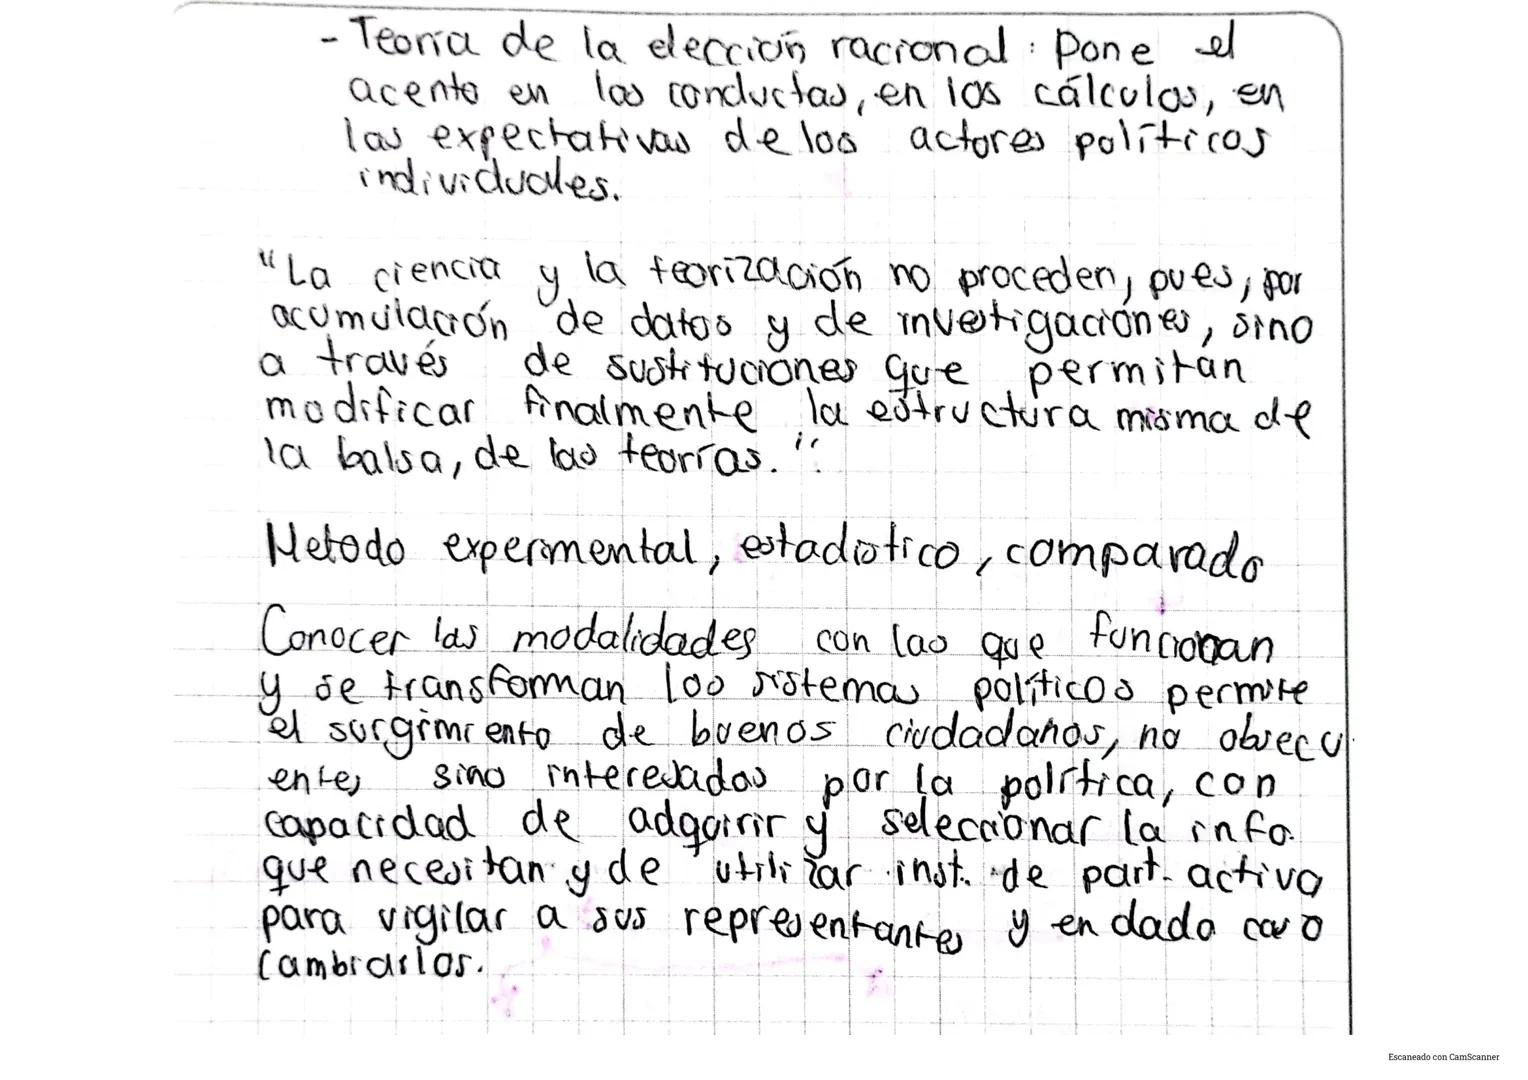 - Teoría de la elección racional: Pone el
acento en las conductas, en los cálculos, en
las expectativas de los actores políticos
individuales.
"La ciencia y la teorización no proceden, pues, por
acumulación de datos y de investigaciones, sino
a través de sustituciones que permitan
modificar finalmente la estructura misma de
la balsa, de las teorías."
Metodo experimental, estadistico, comparado
Conocer las modalidades con las que funcionan
y se transforman los sistemas políticos permite
el surgimiento de buenos ciudadanos, no obsecu
entes sino interesados por la política, con
capacidad de adquirir y seleccionar la info.
que necesitan y de utilizar inst. de part. activa
para vigilar a sus representantes y en dado caso
cambiarlos.
Escaneado con CamScanner